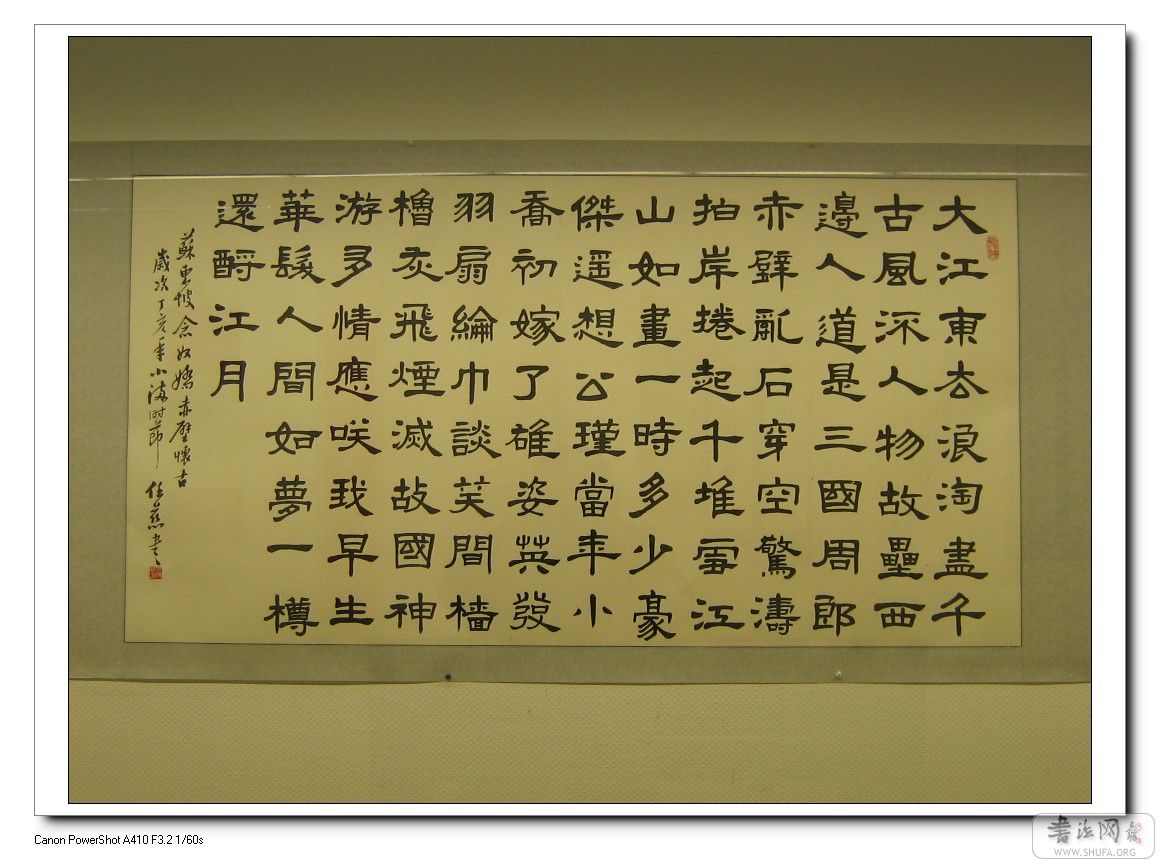 大江東去浪淘盡千
古風流人物故壘西
邊人道是三國周郎
赤壁亂石穿空驚濤
拍岸捲起千堆雪江
山如畫一時多少豪
傑遥想公瑾當年小
喬初嫁了雄姿英發
羽扇綸巾談笑間檣
櫓灰飛煙滅故國神
游多情應咲我早生
華髮人間如夢一樽
還酹江月
蘇東坡念奴嬌赤壁懷古
歲次丁亥年小滿时節 任 書
Canon PowerShot A410 F3.2 1/60s
書法网
WWW.SHUFA.ORG